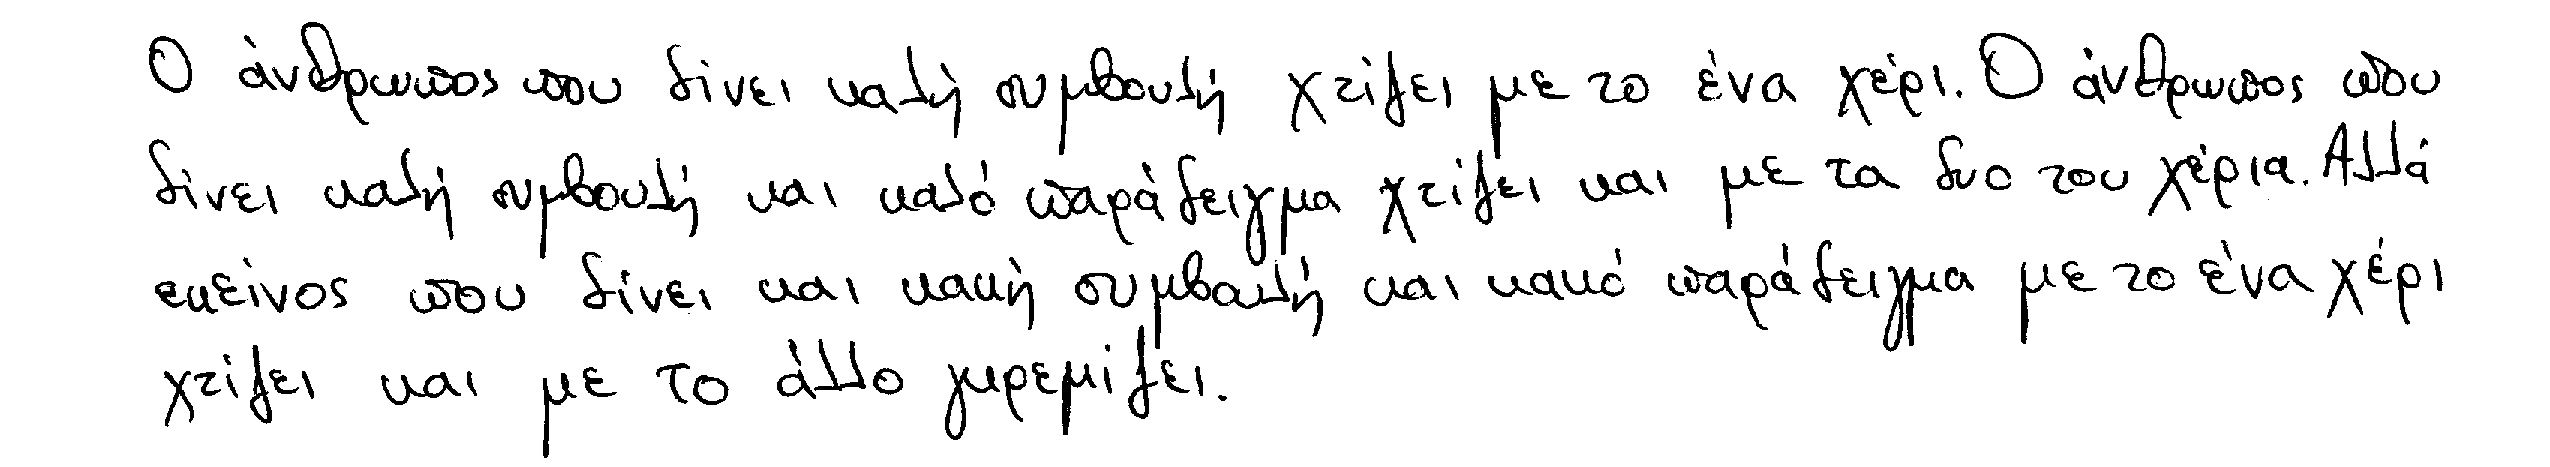 Ο άνθρωπος που δίνει καλή συμβουλή χτίζει με το ένα χέρι. Ο άνθρωπος που
δίνει καλή συμβουλή και καλό παράδειγμα χτίζει και με τα δυο του χέρια. Αλλά
εκείνος που δίνει και κακή συμβαυλή και κακό παράδειγμα με το ένα χέρι
χτίζει και με το άλλο γκρεμίζει.